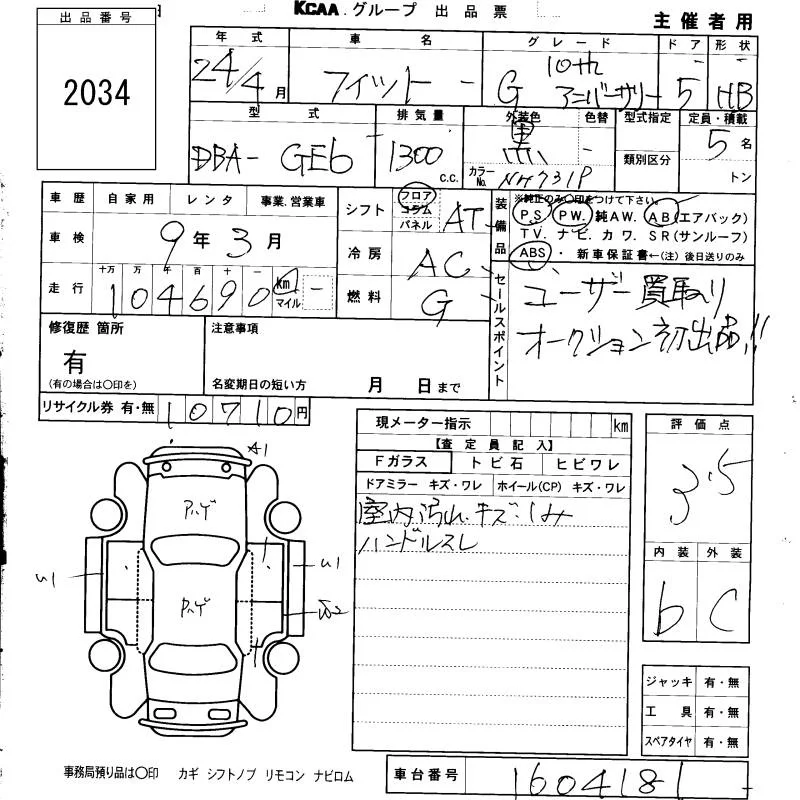 KCAA グループ 出品票
主催者用
出品番号
2034
年式 車名 グレード ドア 形状
24/4月 フィット - G 10th アニバーサリー 5 HB
型式 排気量 外装色 色替 型式指定 定員・積載
類別区分
DBA- GE6 1300 c.c. 黒 - カラーNo. NH731P 5名
トン
車歴 自家用 レンタ 事業.営業車
車検 9年3月
走行 十万 万 千 百 十 一
104690 km マイル -
シフト フロア コラム パネル AT
冷房 AC
燃料 G
装備品 ※純正のみ○印をつけて下さい。
P.S PW. 純AW. AB(エアバック)
TV. ナビ. カワ. SR(サンルーフ)
ABS・ 新車保証書←(注)後日送りのみ
セールスポイント
ユーザー買取り
オークション初出品!!
修復歴 箇所
有
(有の場合は○印を)
注意事項
名変期日の短い方 月 日まで
リサイクル券 有・無 10710円
現メーター指示 km
【査定員記入】
Fガラス トビ石 ヒビワレ
ドアミラー キズ・ワレ ホイール(CP) キズ・ワレ
室内汚れ.キズ.シミ
ハンドルスレ
評価点
3.5
内装 外装
b C
ジャッキ 有・無
工具 有・無
スペアタイヤ 有・無
A1
U1
U1
事務局預り品は○印 カギ シフトノブ リモコン ナビロム
車台番号 1604181